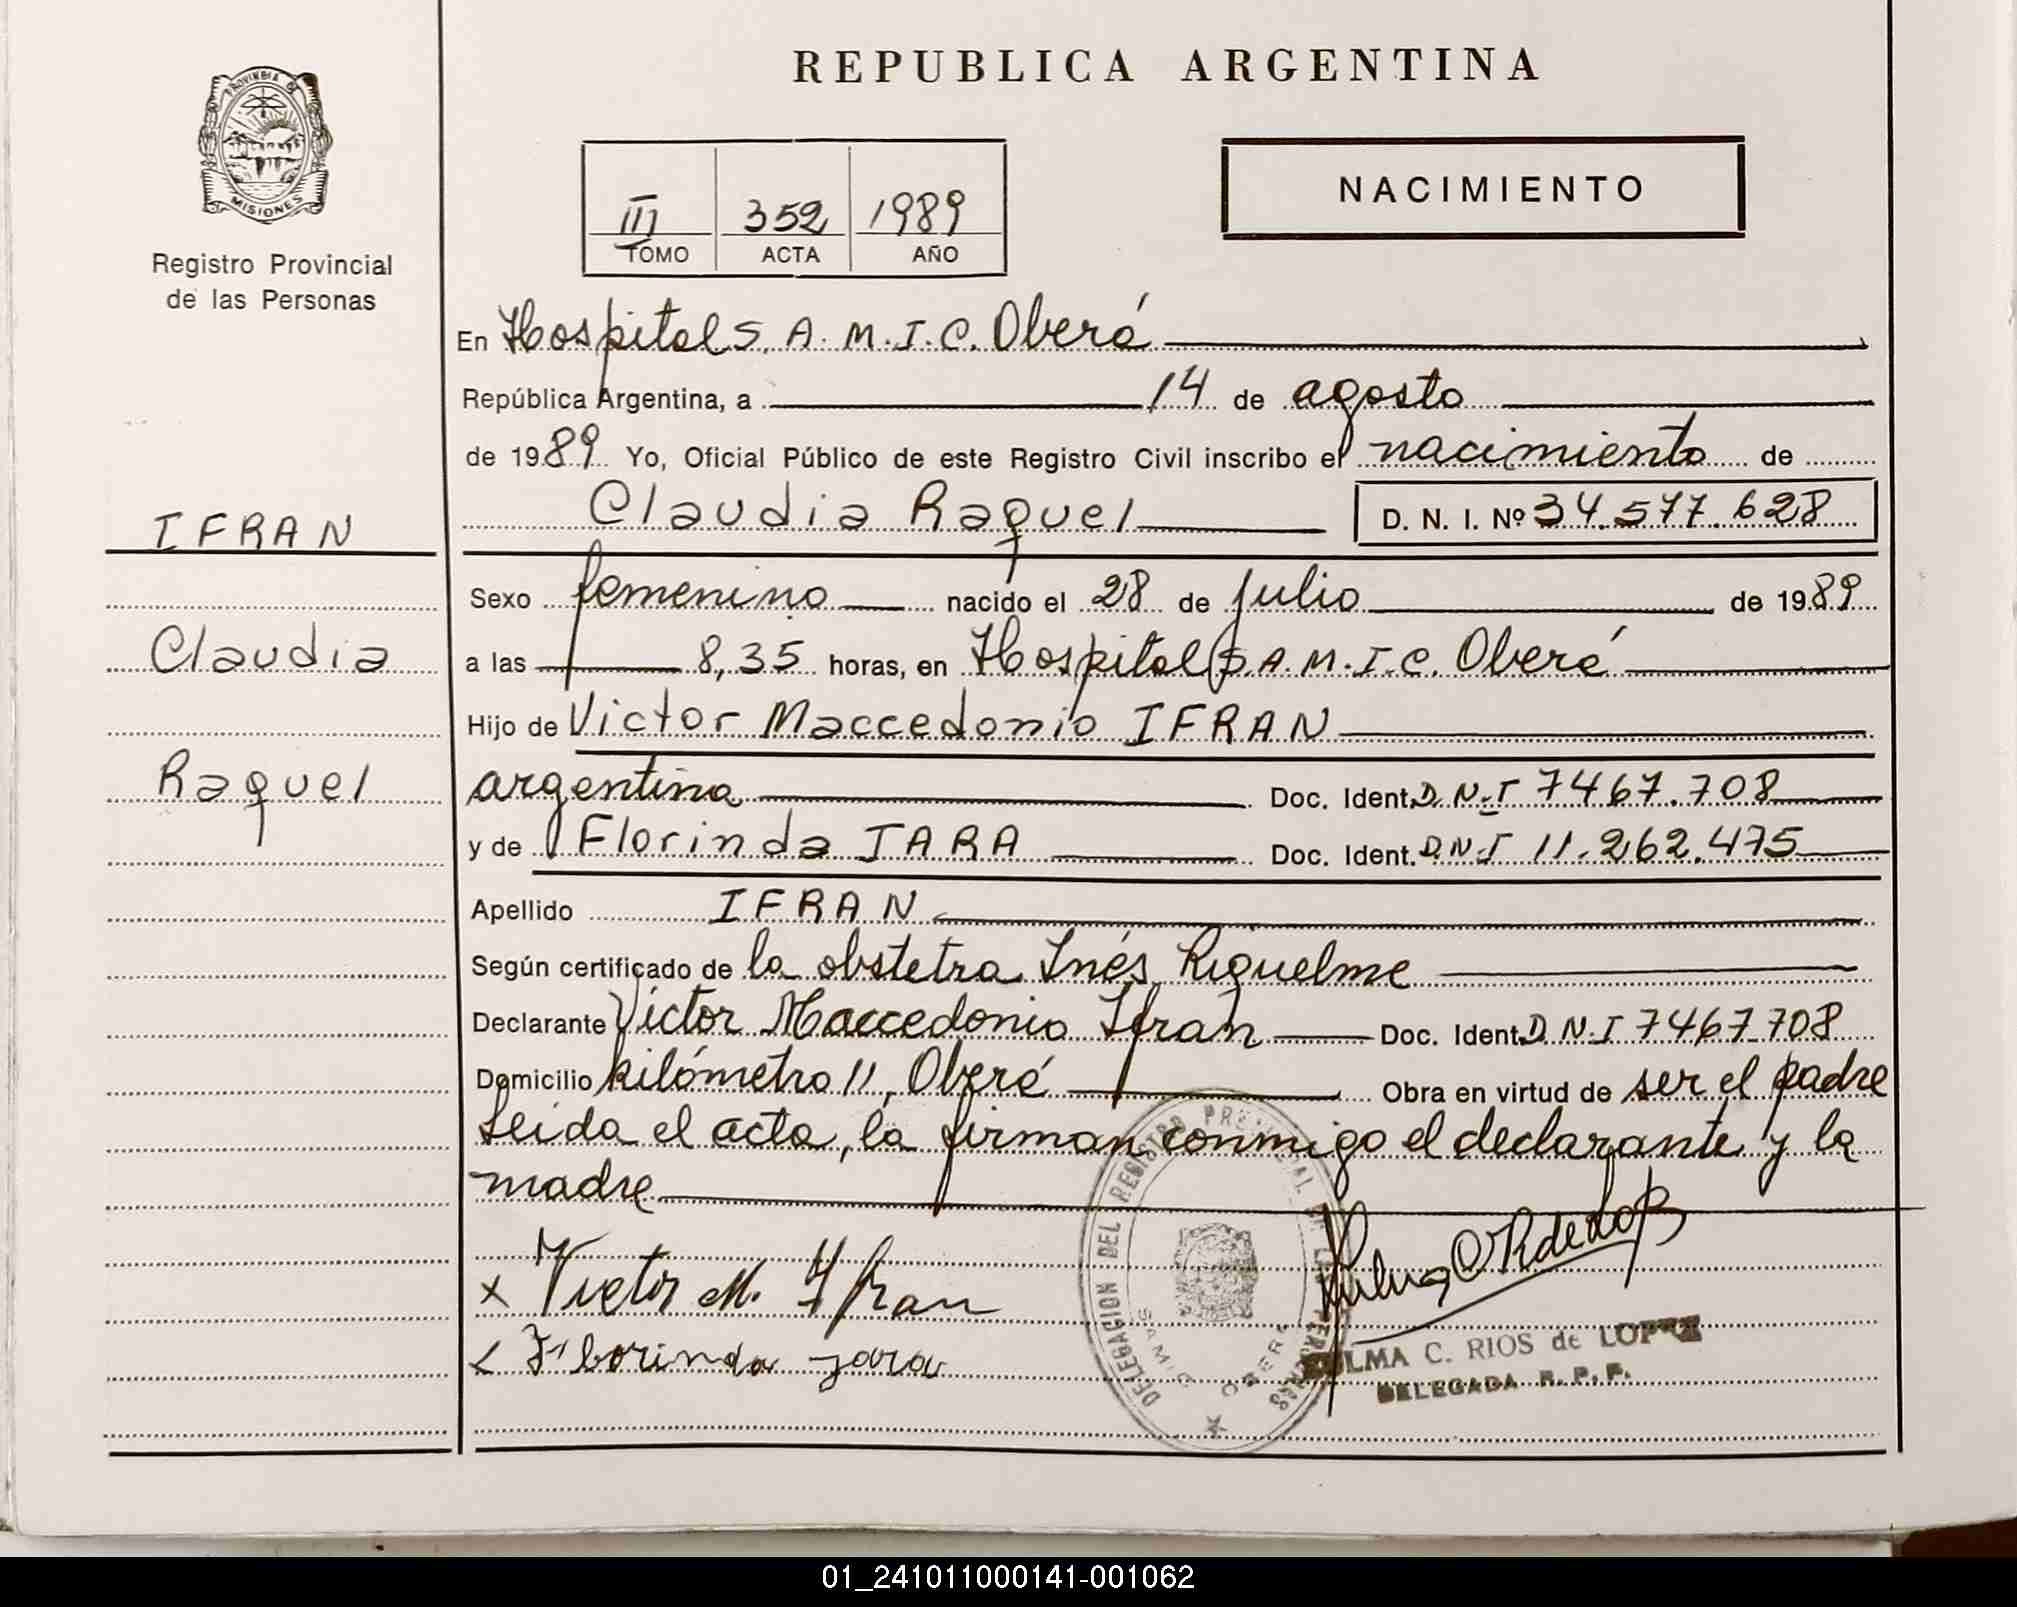 REPUBLICA ARGENTINA
PROVINCIA DE
MISIONES
Registro Provincial
de las Personas
III 352 1989
TOMO ACTA AÑO
NACIMIENTO
En Hospital S.A.M.I.C. Oberá
República Argentina, a 14 de agosto
de 1989 Yo, Oficial Público de este Registro Civil inscribo el nacimiento de
Claudia Raquel D. N. I. Nº 34.577.628
IFRAN
Claudia
Raquel
Sexo femenino nacido el 28 de julio de 1989
a las 8,35 horas, en Hospital S.A.M.I.C. Oberá
Hijo de Victor Maccedonio IFRAN
argentina Doc. Ident. D.N.I 7467.708
y de Florinda JARA Doc. Ident. D.N.I 11.262.475
Apellido IFRAN
Según certificado de la obstetra Inés Riquelme
Declarante Victor Maccedonio Ifran Doc. Ident. D.N.I 7467.708
Domicilio kilómetro 11, Oberá Obra en virtud de ser el padre
Leida el acta, la firman conmigo el declarante y la
madre
x Victor M. Ifran
Florinda jara
DELEGACION DEL REGISTRO PROVINCIAL DE LAS PERSONAS
SAMIC OBERA
ZULMA C. RIOS de LOPEZ
DELEGADA R. P. P.
01_241011000141-001062